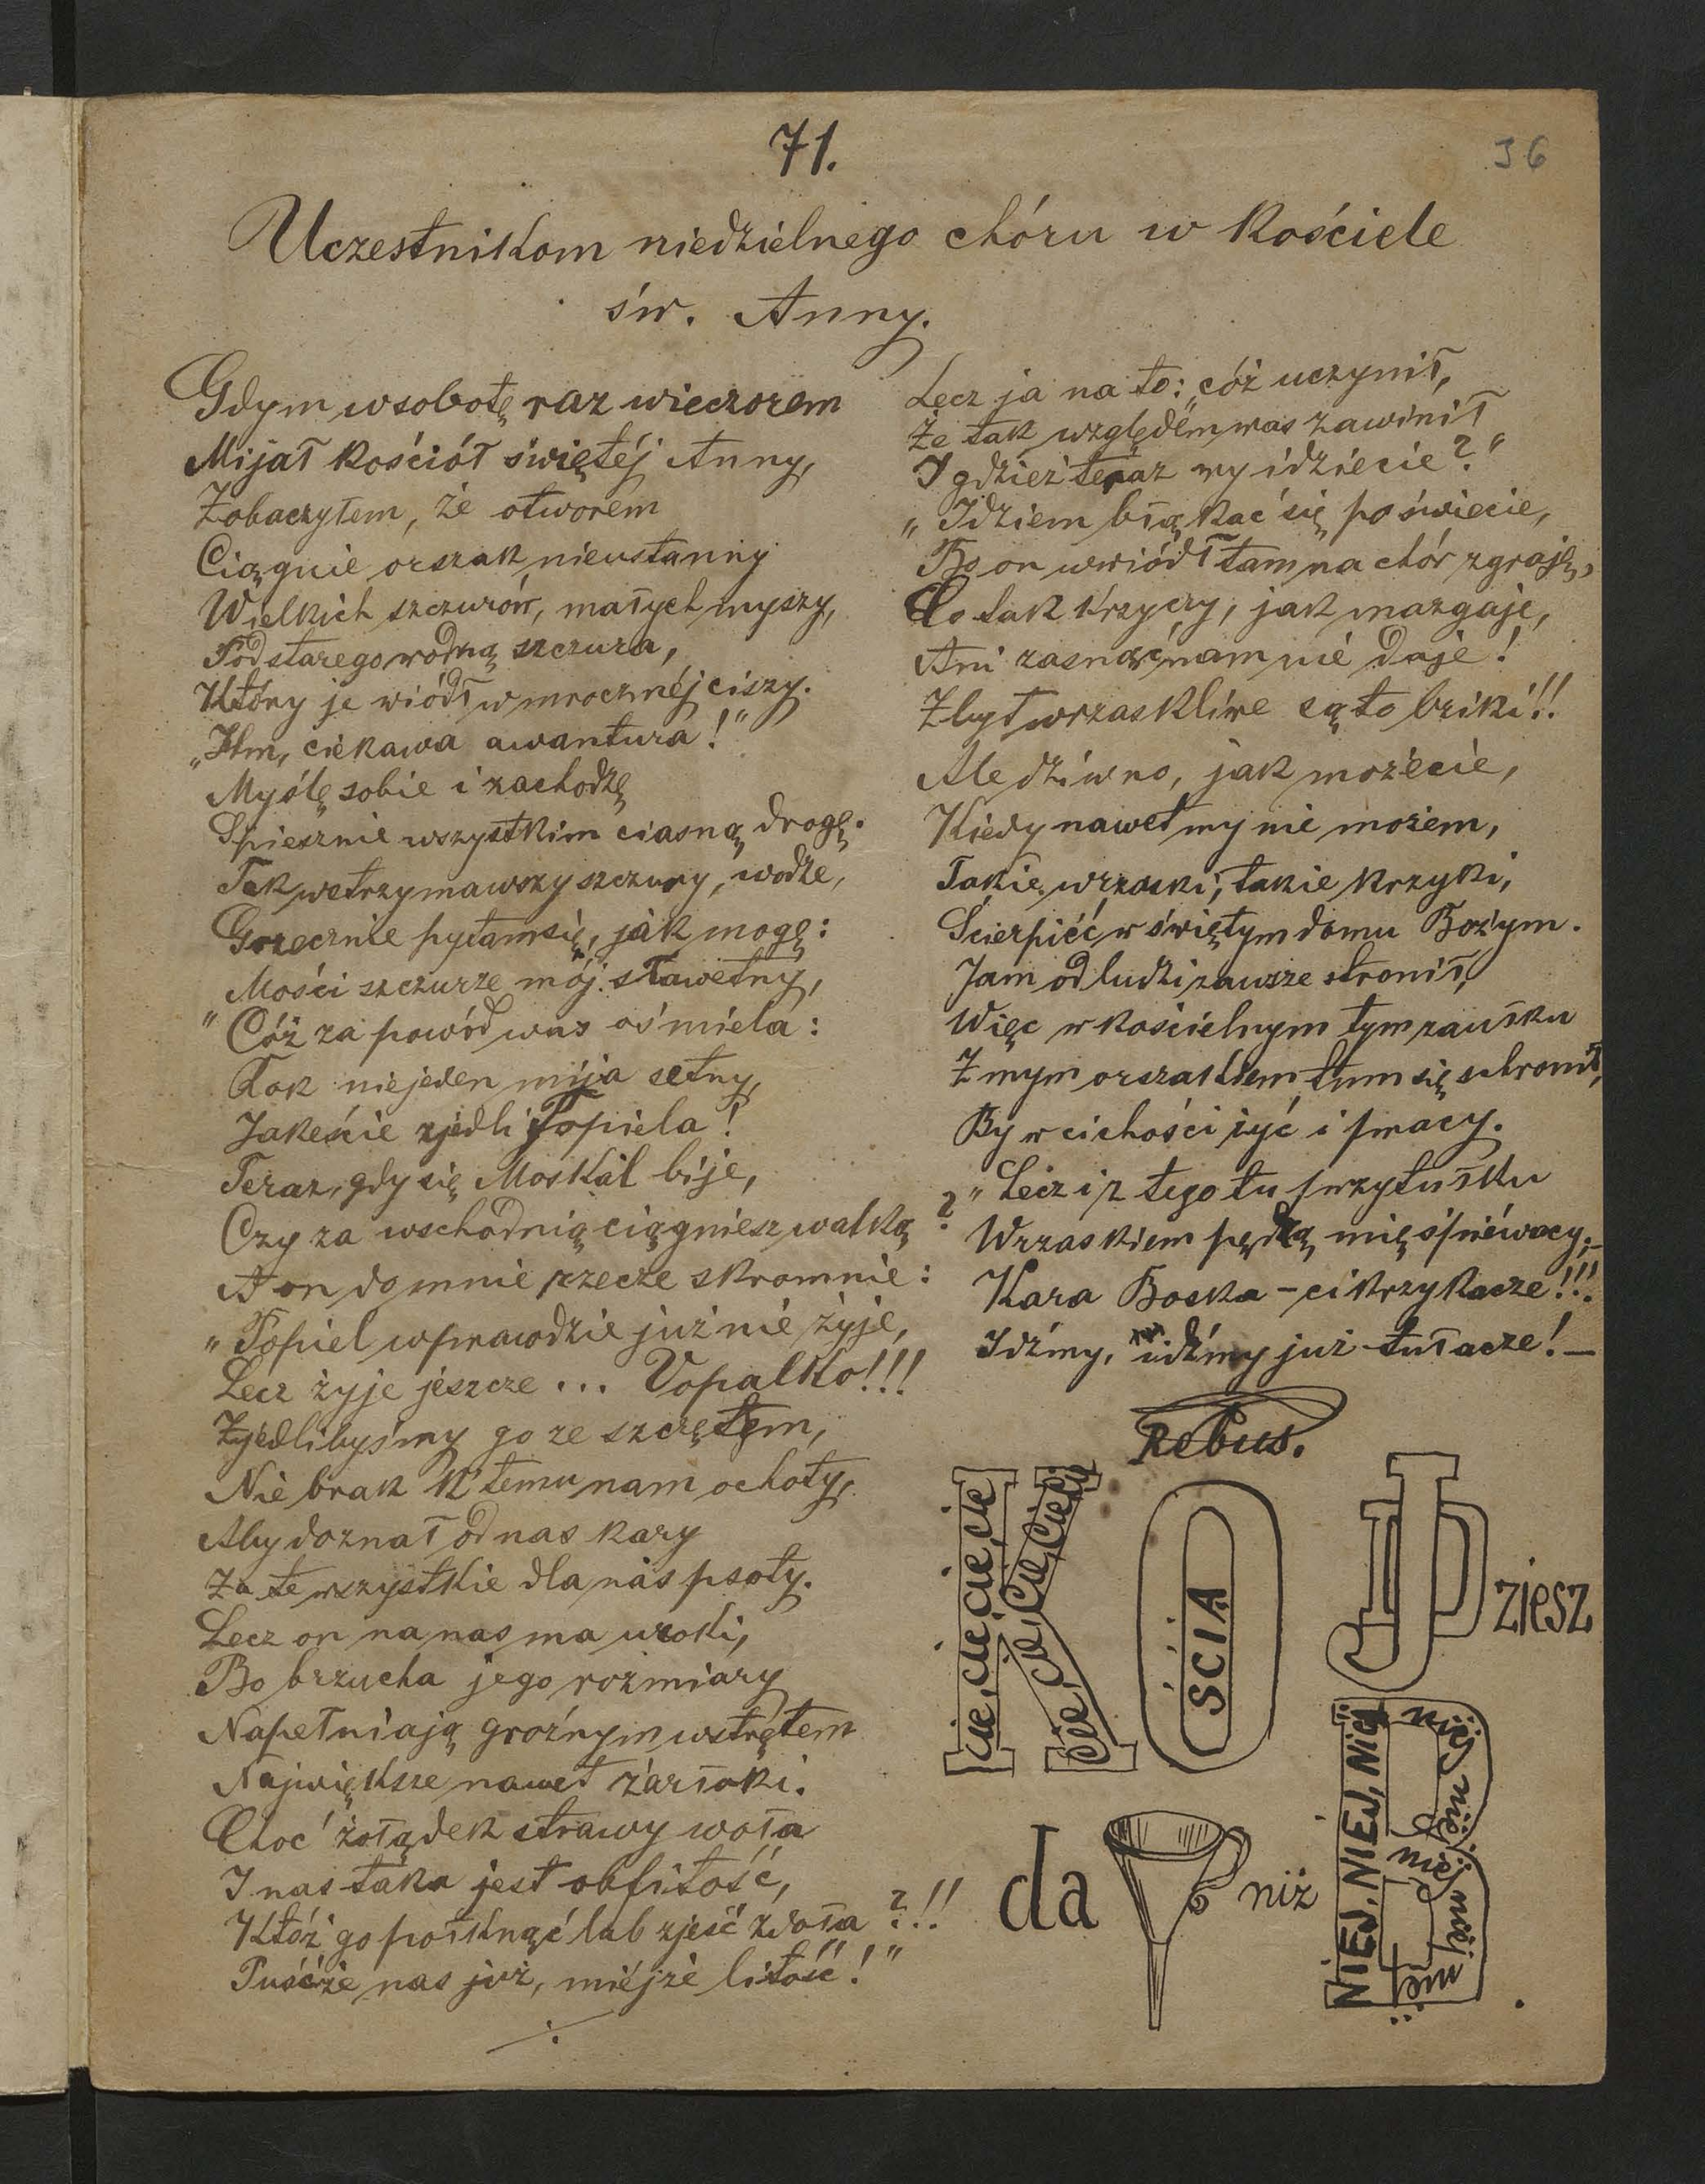 71.
36
Uczestnikom niedzielnego chóru w kościele
św. Anny.
Gdym w sobotę raz wieczorem
Mijał kościół świętéj Anny,
Zobaczyłem, że otworem
Ciągnie orszak nieustanny
Wielkich szczurów, małych myszy,
Pod starego wodzą szczura,
Który je wiódł w mrocznéj ciszy.
„Hm, ciekawa awantura!"
Myślę sobie i zachodzę
Spiesznie wszystkim ciasną drogę.
Tak wstrzymawszy szczury, wodze,
Grzecznie pytam się, jak mogę:
Mości szczurze mój sławetny,
"Cóż za powód was ośmiela:
Rok niejeden mija setny,
Jakeście zjedli Popiela!
Teraz, gdy się Moskal bije,
Czy za wschodnią ciągniesz walką ?
A on do mnie rzecze skromnie:
„Popiel wprawdzie już nie żyje,
Lecz żyje jeszcze ... Vopalko!!!
Zjedlibyśmy go ze szczętem,
Nie brak k'temu nam ochoty,
Aby doznał od nas kary
Za te wszystkie dla nas psoty.
Lecz on na nas ma uroki,
Bo brzucha jego rozmiary
Napełniają groźnym wstrętem
Największe nawet żarłoki.
Choć żołądek strawy woła
I nas taka jest obfitość,
Któż go połknąć lub zjeść zdoła ?!!
Puśćże nas już, miéjże litość!"
Lecz ja na to: „cóż uczynił,
Że tak względem was zawinił
I gdzież teraz wy idziecie?"
„Idziem błąkać się po świecie,
Bo on wwiódł tam na chór zgraję,
Co tak krzyczy, jak mazgaje,
Ani zasnąć nam nie daje!
Zbyt wrzaskliwe są to bziki!!
Ale dziwno, jak możecie,
Kiedy nawet my nie możem,
Takie wrzaski, takie krzyki,
Ścierpiéć w świętym domu Bożym.
Jam od ludzi zawsze stronił,
Więc w kościelnym tym zaułku
Z mym orszakiem tum się schronił,
By w cichości żyć i pracy.
„Lecz i z tego tu przytułku
Wrzaskiem pędzą mię śpiéwacy;–
Kara Boska – ci krzykacze!!!
Idźmy, idźmy już tułacze! –
Rebus.
cie, cie, cie, cie, cie
cie, cie, cie, cie, cie
ŚCIA
J D ziesz
da
niż
NIEJ, NIEJ, Niej
niej niej niej niej niej